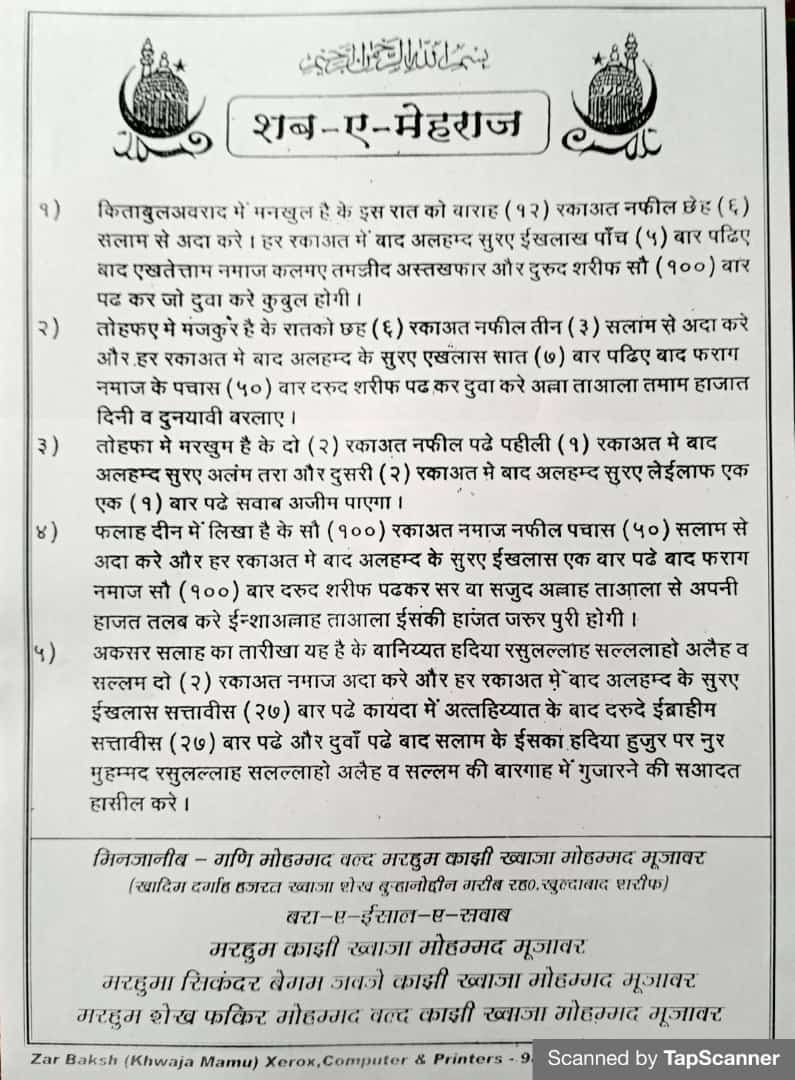 بسم الله الرحمن الرحيم
शब-ए-मेहराज
१) किताबुलअवराद में मनखुल है के इस रात को बाराह (१२) रकाअत नफील छेह (६)
सलाम से अदा करे । हर रकाअत में बाद अलहम्द सुरए ईखलाख पाँच (५) बार पढिए
बाद एखतेत्ताम नमाज कलमए तमज्जीद अस्तखफार और दुरुद शरीफ सौ (१००) बार
पढ कर जो दुवा करे कुबुल होगी ।
२) तोहफए मे मजकुर है के रातको छह (६) रकाअत नफील तीन (३) सलाम से अदा करे
और हर रकाअत मे बाद अलहम्द के सुरए एखलास सात (७) बार पढिए बाद फराग
नमाज के पचास (५०) बार दरुद शरीफ पढ कर दुवा करे अल्ला ताआला तमाम हाजात
दिनी व दुनयावी बरलाए ।
३) तोहफा मे मरखुम है के दो (२) रकाअत नफील पढे पहीली (१) रकाअत मे बाद
अलहम्द सुरए अलंम तरा और दुसरी (२) रकाअत मे बाद अलहम्द सुरए लेईलाफ एक
एक (१) बार पढे सवाब अजीम पाएगा ।
४) फलाह दीन में लिखा है के सौ (१००) रकाअत नमाज नफील पचास (५०) सलाम से
अदा करे और हर रकाअत मे बाद अलहम्द के सुरए ईखलास एक बार पढे बाद फराग
नमाज सौ (१००) बार दरुद शरीफ पढकर सर बा सजुद अल्लाह ताआला से अपनी
हाजत तलब करे ईन्शाअल्लाह ताआला ईसकी हाजंत जरुर पुरी होगी ।
५) अकसर सलाह का तारीखा यह है के बानिय्यत हदिया रसुलल्लाह सल्ललाहो अलैह व
सल्लम दो (२) रकाअत नमाज अदा करे और हर रकाअत में बाद अलहम्द के सुरए
ईखलास सत्तावीस (२७) बार पढे कायदा में अत्तहिय्यात के बाद दरुदे ईब्राहीम
सत्तावीस (२७) बार पढे और दुवाँ पढे बाद सलाम के ईसका हदिया हुजुर पर नुर
मुहम्मद रसुलल्लाह सलल्लाहो अलैह व सल्लम की बारगाह में गुजारने की सआदत
हासील करे ।
मिनजानीब - गणि मोहम्मद वल्द मरहुम काझी ख्वाजा मोहम्मद मूजावर
(खादिम दर्गाह हजरत ख्वाजा शेख बुऱ्हानोद्दीन गरीब रह०.खुल्दाबाद शरीफ)
बरा-ए-ईसाल-ए-सवाब
मरहुम काझी ख्वाजा मोहम्मद मूजावर
मरहुमा सिकंदर बेगम जवजे काझी ख्वाजा मोहम्मद मूजावर
मरहुम शेख फकिर मोहम्मद वल्द काझी ख्वाजा मोहम़्मद मूजावर
Zar Baksh (Khwaja Mamu) Xerox,Computer & Printers - 9
Scanned by TapScanner